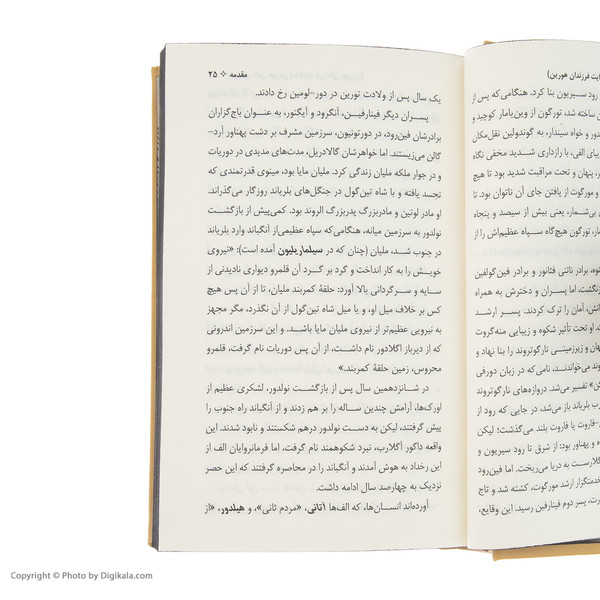 ایت فرزندان هورین)
رود سیریون بنا کرد. هنگامی‌که پس از
ساخته شد، تورگون از وین‌یامار کوچید و
دور و خواه سیندار، به گوندولین نقل‌مکان
یبای الفی، با رازداری شدید مخفی نگاه
پنهان و تحت مراقبت شدید بود تا هیچ
و مورگوت از یافتن جای آن ناتوان بود. تا
بی‌شمار، یعنی بیش از سیصد و پنجاه
تورگون هیچ‌گاه سپاه عظیم‌اش را از
برادر ناتنی فئانور و برادر فین‌گولفین
نگشت، اما پسران و دخترش به همراه
آمان را ترک کردند. پسر ارشد
و تحت تأثیر شکوه و زیبایی منه‌گروت
و زیرزمینی نارگوتروند را بنا نهاد و
وند می‌خواندند، نامی‌که در زبان دورفی
تفسیر می‌شد. دروازه‌های نارگوتروند
رب بلریاند باز می‌شد، در جایی که رود از
فاروت یا فاروت بلند می‌گذشت؛ لیکن
و پهناور بود: از شرق تا رود سیریون و
گلارست به دریا می‌ریخت. اما فین‌رود
خدمتگزار ارشد مورگوت، کشته شد و تاج
پسر دوم فینارفین رسید. این وقایع،
مقدمه ✧ ۲۵
یک سال پس از ولادت تورین در دور-لومین رخ دادند.
پسران دیگر فینارفین، آنگرود و آیگنور، به عنوان باج‌گزاران
برادرشان فین‌رود، در دورتونیون، سرزمین مشرف بر دشت پهناور آرد-
گالن می‌زیستند. اما خواهرشان گالادریل، مدت‌های مدیدی در دوریات
و در جوار ملکه ملیان زندگی کرد. ملیان مایا بود، مینوی قدرتمندی که
تجسد یافته و با شاه تین‌گول در جنگل‌های بلریاند روزگار می‌گذراند.
او مادر لوتین و مادربزرگ پدربزرگ الروند بود. کمی‌پیش از بازگشت
نولدور به سرزمین میانه، هنگامی‌که سپاه عظیمی‌از آنگباند وارد بلریاند
در جنوب شد، ملیان (چنان که در سیلماریلیون آمده است): «نیروی
خویش را به کار انداخت و گرد بر گرد آن قلمرو دیواری نادیدنی از
سایه و سرگردانی بالا آورد: حلقهٔ کمربند ملیان، تا از آن پس هیچ
کس بر خلاف میل او، و یا میل شاه تین‌گول از آن نگذرد، مگر مجهز
به نیرویی عظیم‌تر از نیروی ملیان مایا باشد. و این سرزمین اندرونی
که از دیرباز اگلادور نام داشت، از آن پس دوریات نام گرفت، قلمرو
محروس، زمین حلقهٔ کمربند.»
در شانزدهمین سال پس از بازگشت نولدور، لشکری عظیم از
اورک‌ها، آرامش چندین ساله را بر هم زدند و از آنگباند راه جنوب را
پیش گرفتند، لیکن به دست نولدور درهم شکستند و نابود شدند. این
واقعه داگور آگلارب، نبرد شکوهمند نام گرفت، اما فرمانروایان الف از
این رخداد به هوش آمدند و آنگباند را در محاصره گرفتند که این حصر
نزدیک به چهارصد سال ادامه داشت.
آورده‌اند انسان‌ها، که الف‌ها آتانی، «مردم ثانی»، و هیلدور، «از
Copyright © Photo by Digikala.com